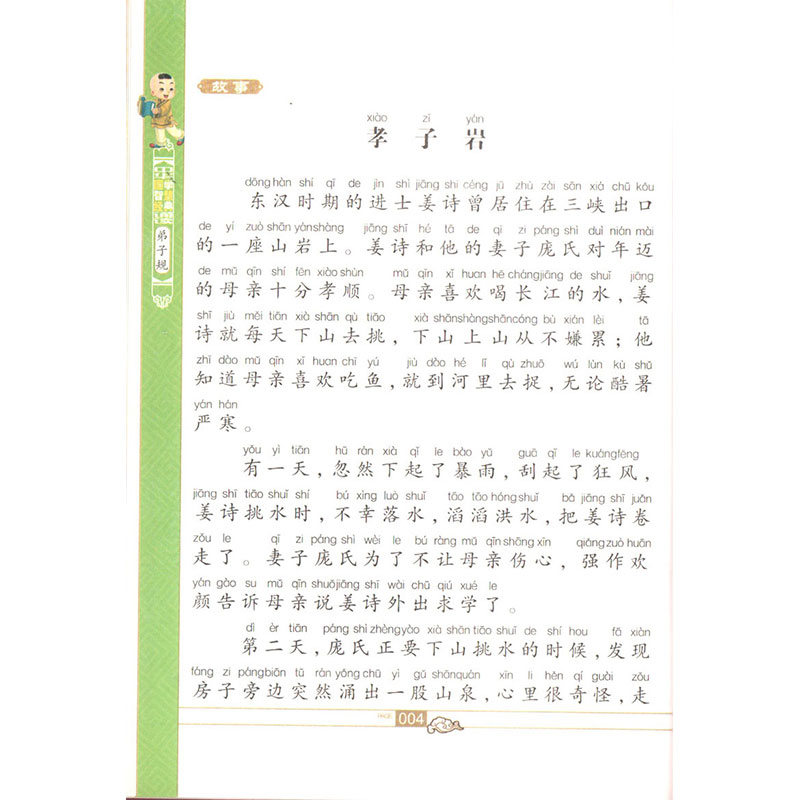 故事
xiào zǐ yán
孝子岩
dōng hàn shí qī de jìn shì jiāng shī céng jū zhù zài sān xiá chū kǒu
东汉时期的进士姜诗曾居住在三峡出口
de yí zuò shān yán shàng jiāng shī hé tā de qī zi páng shì duì nián mài
的一座山岩上。姜诗和他的妻子庞氏对年迈
de mǔ qīn shí fēn xiào shùn mǔ qīn xǐ huan hē cháng jiāng de shuǐ jiāng
的母亲十分孝顺。母亲喜欢喝长江的水,姜
shī jiù měi tiān xià shān qù tiāo xià shān shàng shān cóng bù xián lèi tā
诗就每天下山去挑,下山上山从不嫌累;他
zhī dào mǔ qīn xǐ huan chī yú jiù dào hé lǐ qù zhuō wú lùn kù shǔ
知道母亲喜欢吃鱼,就到河里去捉,无论酷暑
yán hán
严寒。
yǒu yì tiān hū rán xià qǐ le bào yǔ guā qǐ le kuáng fēng
有一天,忽然下起了暴雨,刮起了狂风,
jiāng shī tiāo shuǐ shí bú xìng luò shuǐ tāo tāo hóng shuǐ bǎ jiāng shī juǎn
姜诗挑水时,不幸落水,滔滔洪水,把姜诗卷
zǒu le qī zi páng shì wèi le bú ràng mǔ qīn shāng xīn qiǎng zuò huān
走了。妻子庞氏为了不让母亲伤心,强作欢
yán gào su mǔ qīn shuō jiāng shī wài chū qiú xué le
颜告诉母亲说姜诗外出求学了。
dì èr tiān páng shì zhèng yào xià shān tiāo shuǐ de shí hou fā xiàn
第二天,庞氏正要下山挑水的时候,发现
fáng zi páng biān tū rán yǒng chū yì gǔ shān quán xīn li hěn qí guài zǒu
房子旁边突然涌出一股山泉,心里很奇怪,走
弟子规
004